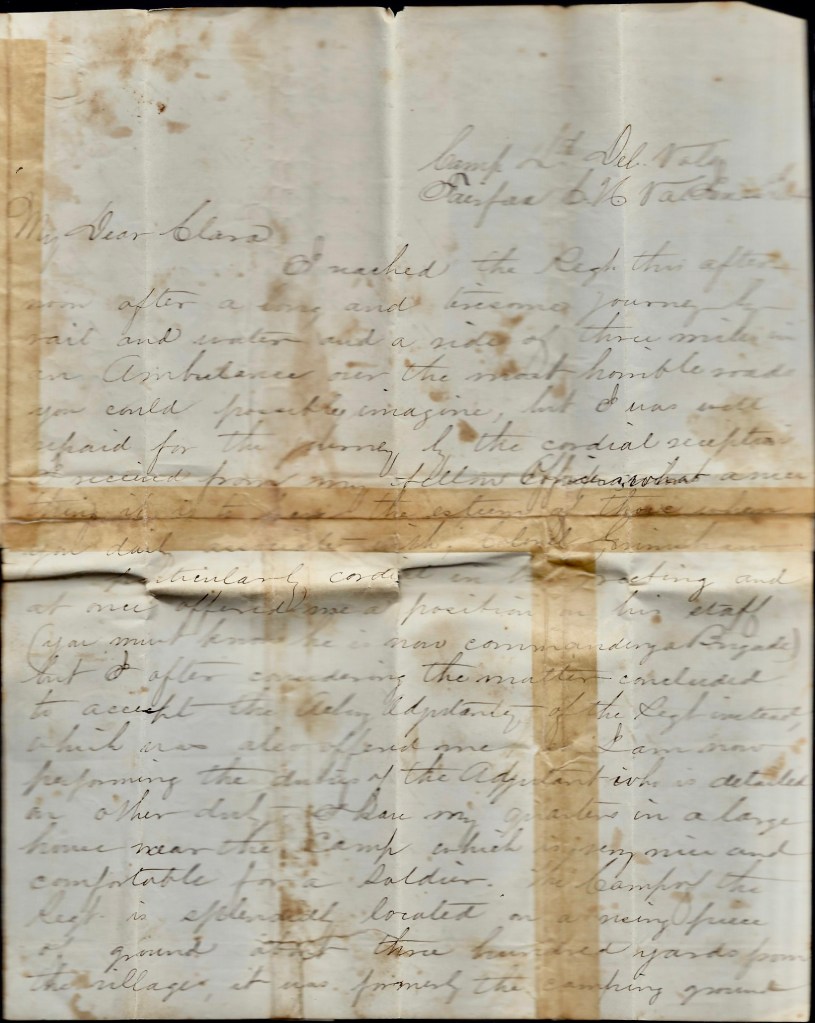 Camp 2nd Del. Vols
Fairfax C. H. Va
My Dear Clara
I reached the Regt. this after-
noon after a long and tiresome journey by
rail and water and a ride of three miles in
an Ambulance over the most horrible roads
you could possible imagine, but I was well
repaid for the journey by the cordial reception
I received from my fellow Officers, what a nice
thing it is to have the esteem of those whom
you daily with. Colonel
particularly cordial in his greeting and
at once offered me a position on his staff
(you must know he is now commanding a Brigade)
but I after considering the matter concluded
to accept the Acting Adjutancy of the Regt instead,
which was also offered me, I am now
performing the duties of the Adjutant who is detailed
on other duty - I have my quarters in a large
house near the Camp which is very nice and
comfortable for a Soldier. The Camp of the
Regt. is splendidly located on a rising piece
of ground about three hundred yards from
the village, it was formerly the camping ground